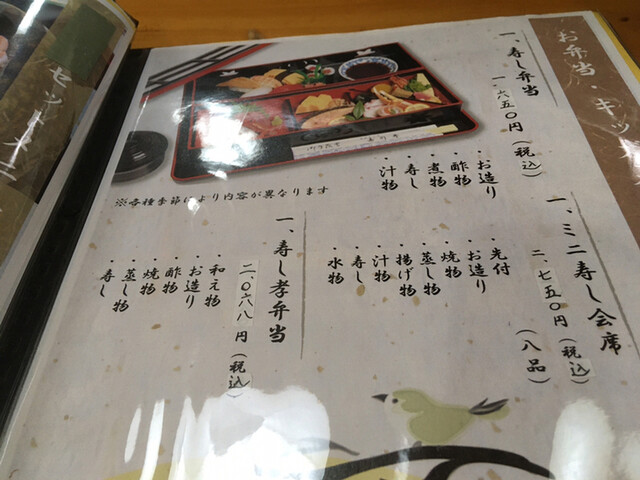 お弁当・キッ
一、寿し弁当
一、六五〇円（税込）
・お造り
・酢物
・煮物
・寿し
・汁物
一、ミニ寿し会席
二、七五〇円（税込）
（八品）
・先付
・お造り
・焼物
・蒸し物
・揚げ物
・汁物
・寿し
・水物
※各種季節により内容が異なります
一、寿し孝弁当
二、〇六八円（税込）
・和え物
・お造り
・酢物
・焼物
・蒸し物
・寿し
セット